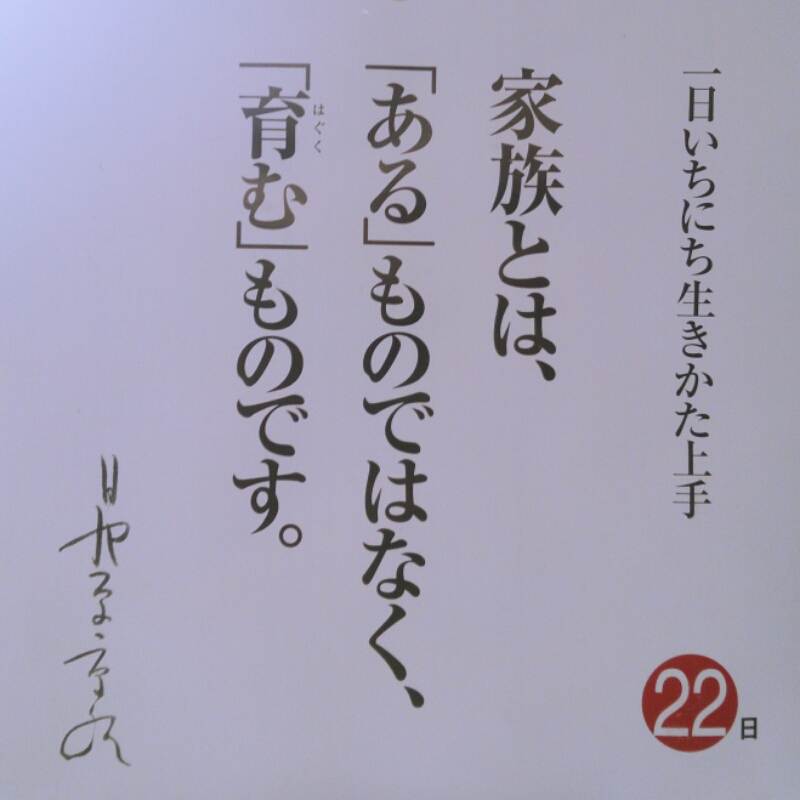 一日いちにち生きかた上手
家族とは、
「ある」ものではなく、
「育む」ものです。
はぐく
日野原重明
22日